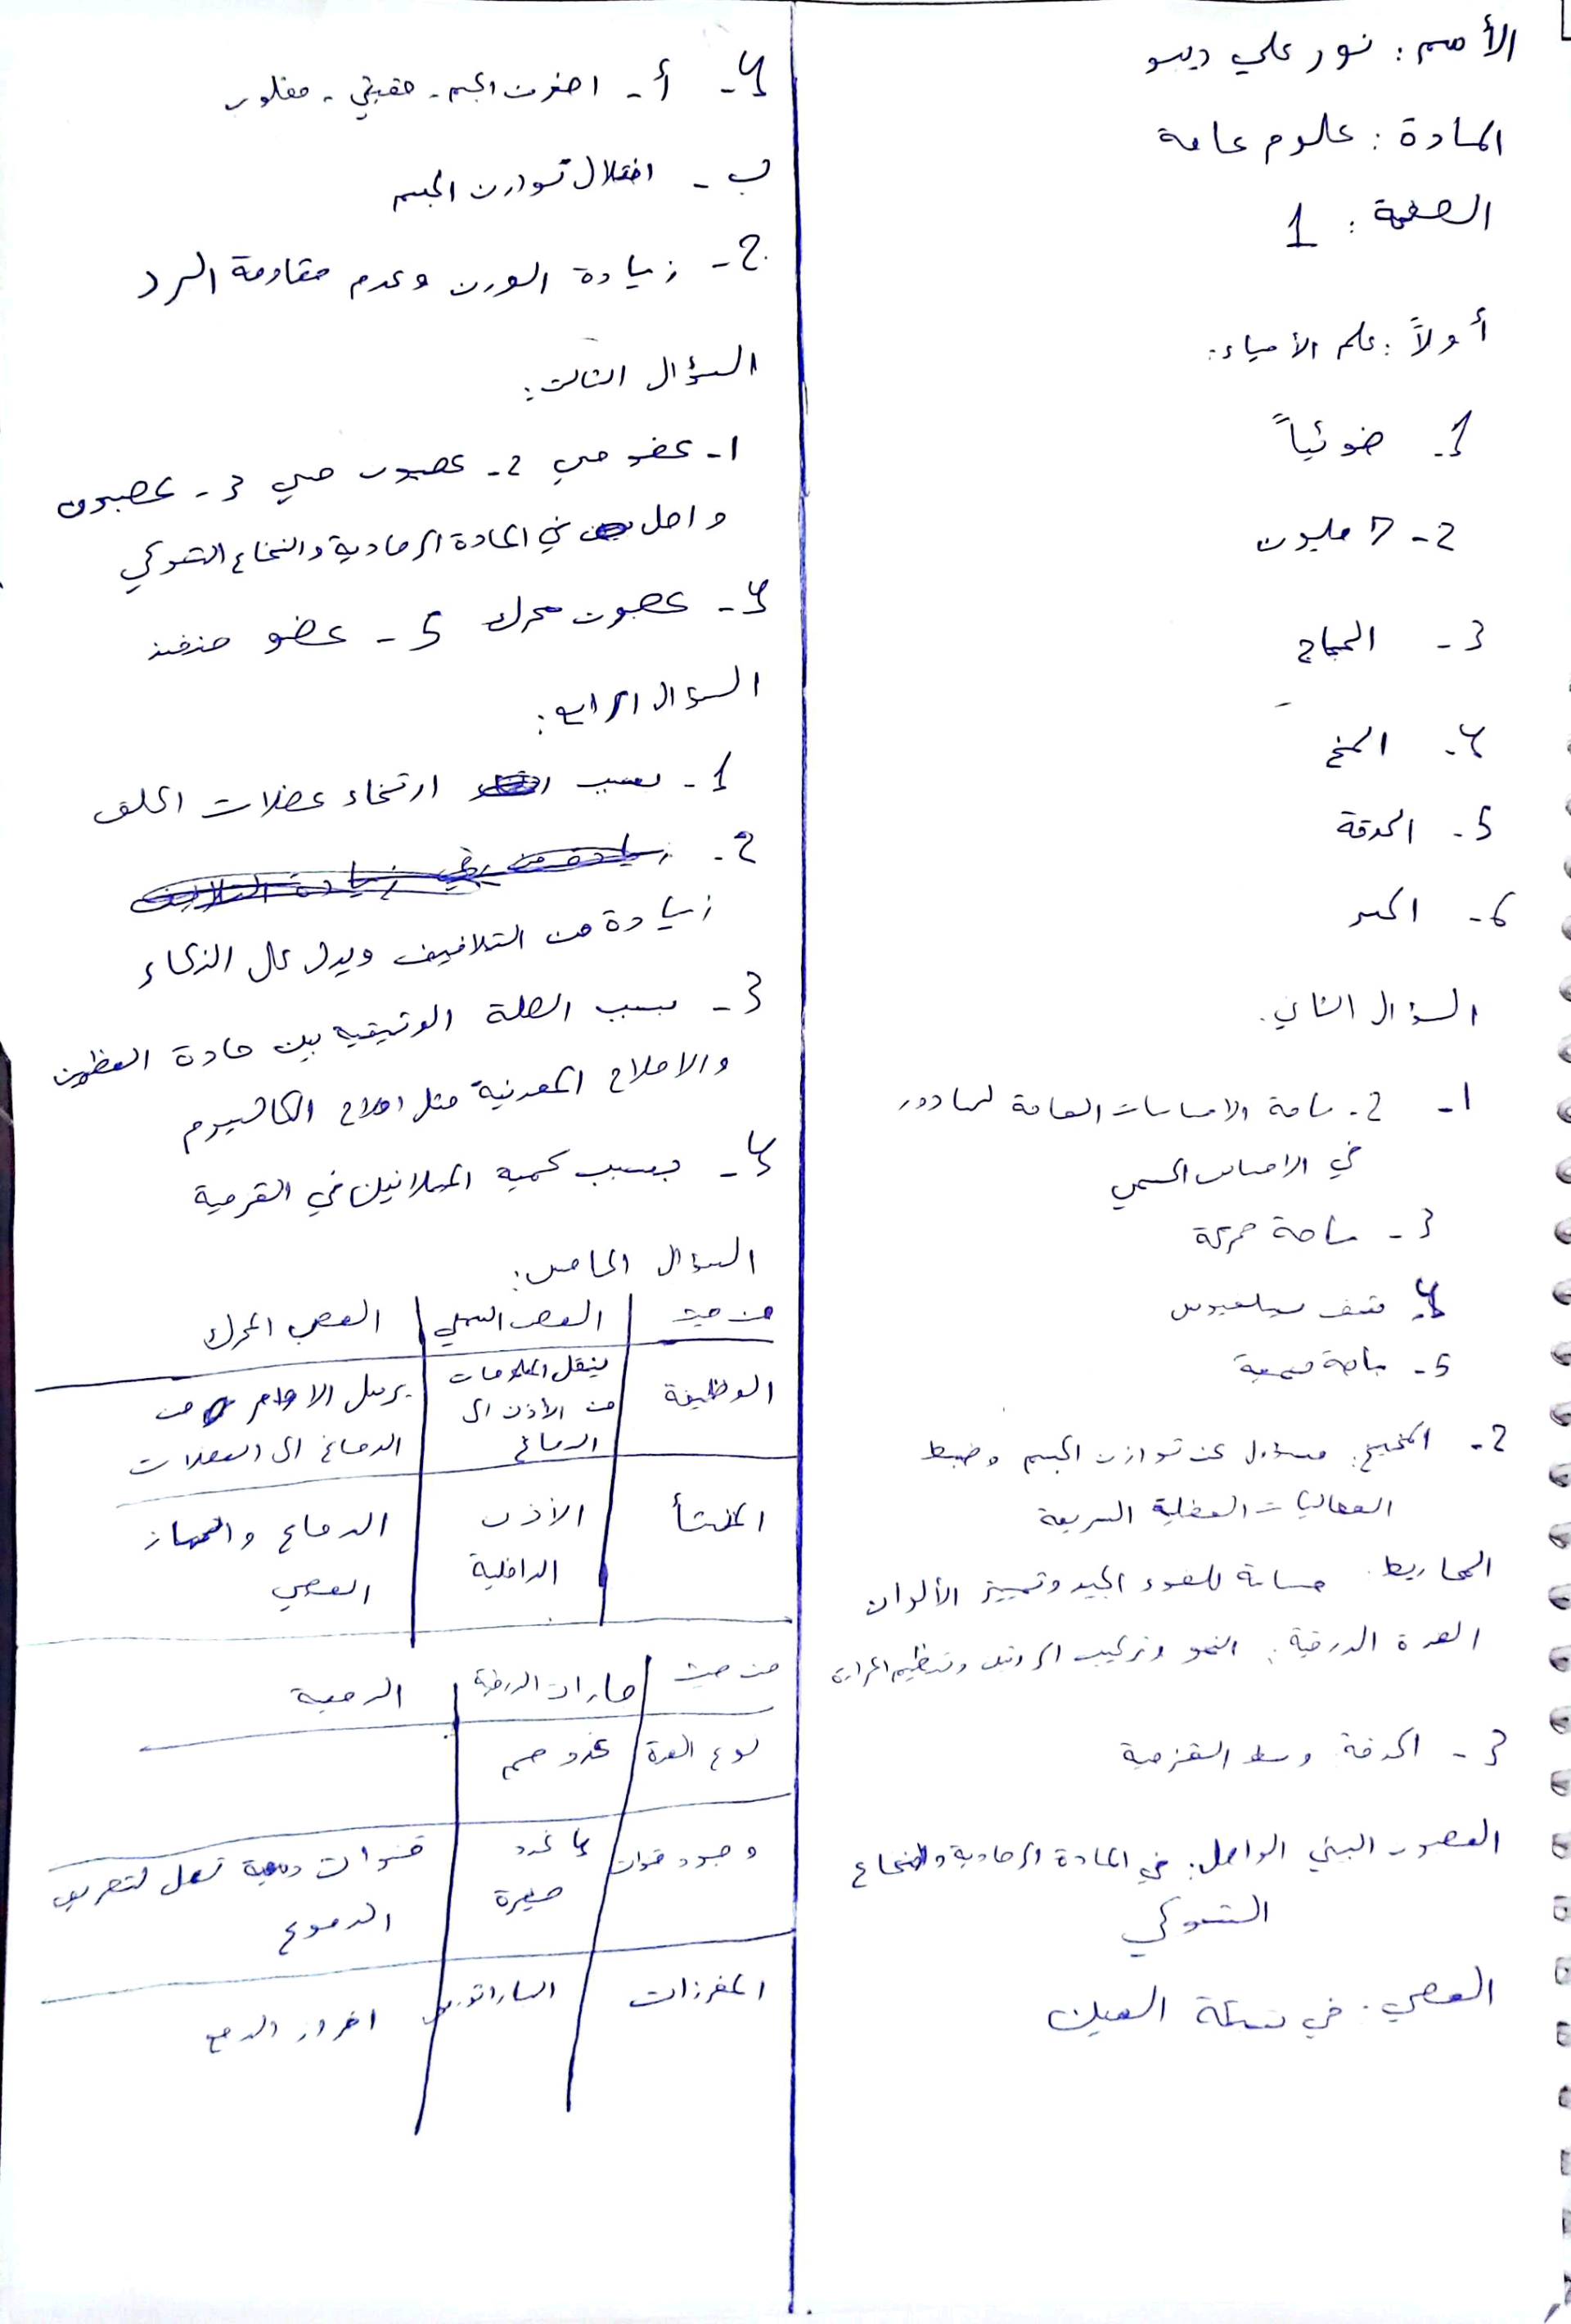 الأسم : نور علي ديبو
المادة : علوم عامة
الصفحة : 1
أولاً : علم الأحياء :
1- ضوئياً
2- 7 مليون
3- الحجاج
4- المخ
5- الحدقة
6- الجسر
السؤال الثاني .
1- 2- ساحة الاحساسات العامة لها دور
في الاحساس الجسمي
3- ساحة محركة
4- شق سيلفيوس
5- باحة سمعية
2- المخيخ : مسؤول عن توازن الجسم وضبط
الفعاليات العضلية السريعة
المخاريط . حساسة للضوء الجيد وتمييز الألوان
الغدة الدرقية : النمو وتركيب البروتين وتنظيم الحرارة
3- الحدقة وسط القزحية
العصبون البيني الواصل : في المادة الرمادية والنخاع
الشوكي
العصي . في شبكة العين
4- أ- اصغر من الجسم - حقيقي - مقلوب
ب- اختلال توازن الجسم
2- زيادة الوزن وعدم مقاومة البرد
السؤال الثالث :
1- عضو حسي 2- عصبون حسي 3- عصبون
واصل في المادة الرمادية والنخاع الشوكي
4- عصبون محرك 5- عضو منفذ
السؤال الرابع :
1- بسبب ارتخاء عضلات الحلق
2-
زيادة من التلافيف ويدل على الذكاء
3- بسبب الصلة الوثيقيه بين مادة العظمين
والاملاح المعدنية مثل املاح الكالسيوم
4- بسبب كميه الميلانين في القزحية
السؤال الخامس :
من حيث العصب السمعي العصب المحرك
الوظيفة ينقل المعلومات من الأذن الى الدماغ يرسل الاوامر من الدماغ الى العضلات
المنشأ الأذن الداخلية الدماغ والجهاز العصبي
من حيث جارات الدرقية الدمعية
نوع الغدة غدد صم
وجود قنوات غدد صغيرة قنوات دمعية تعمل لتصريف الدموع
المفرزات الباراثورمون افراز الدمع